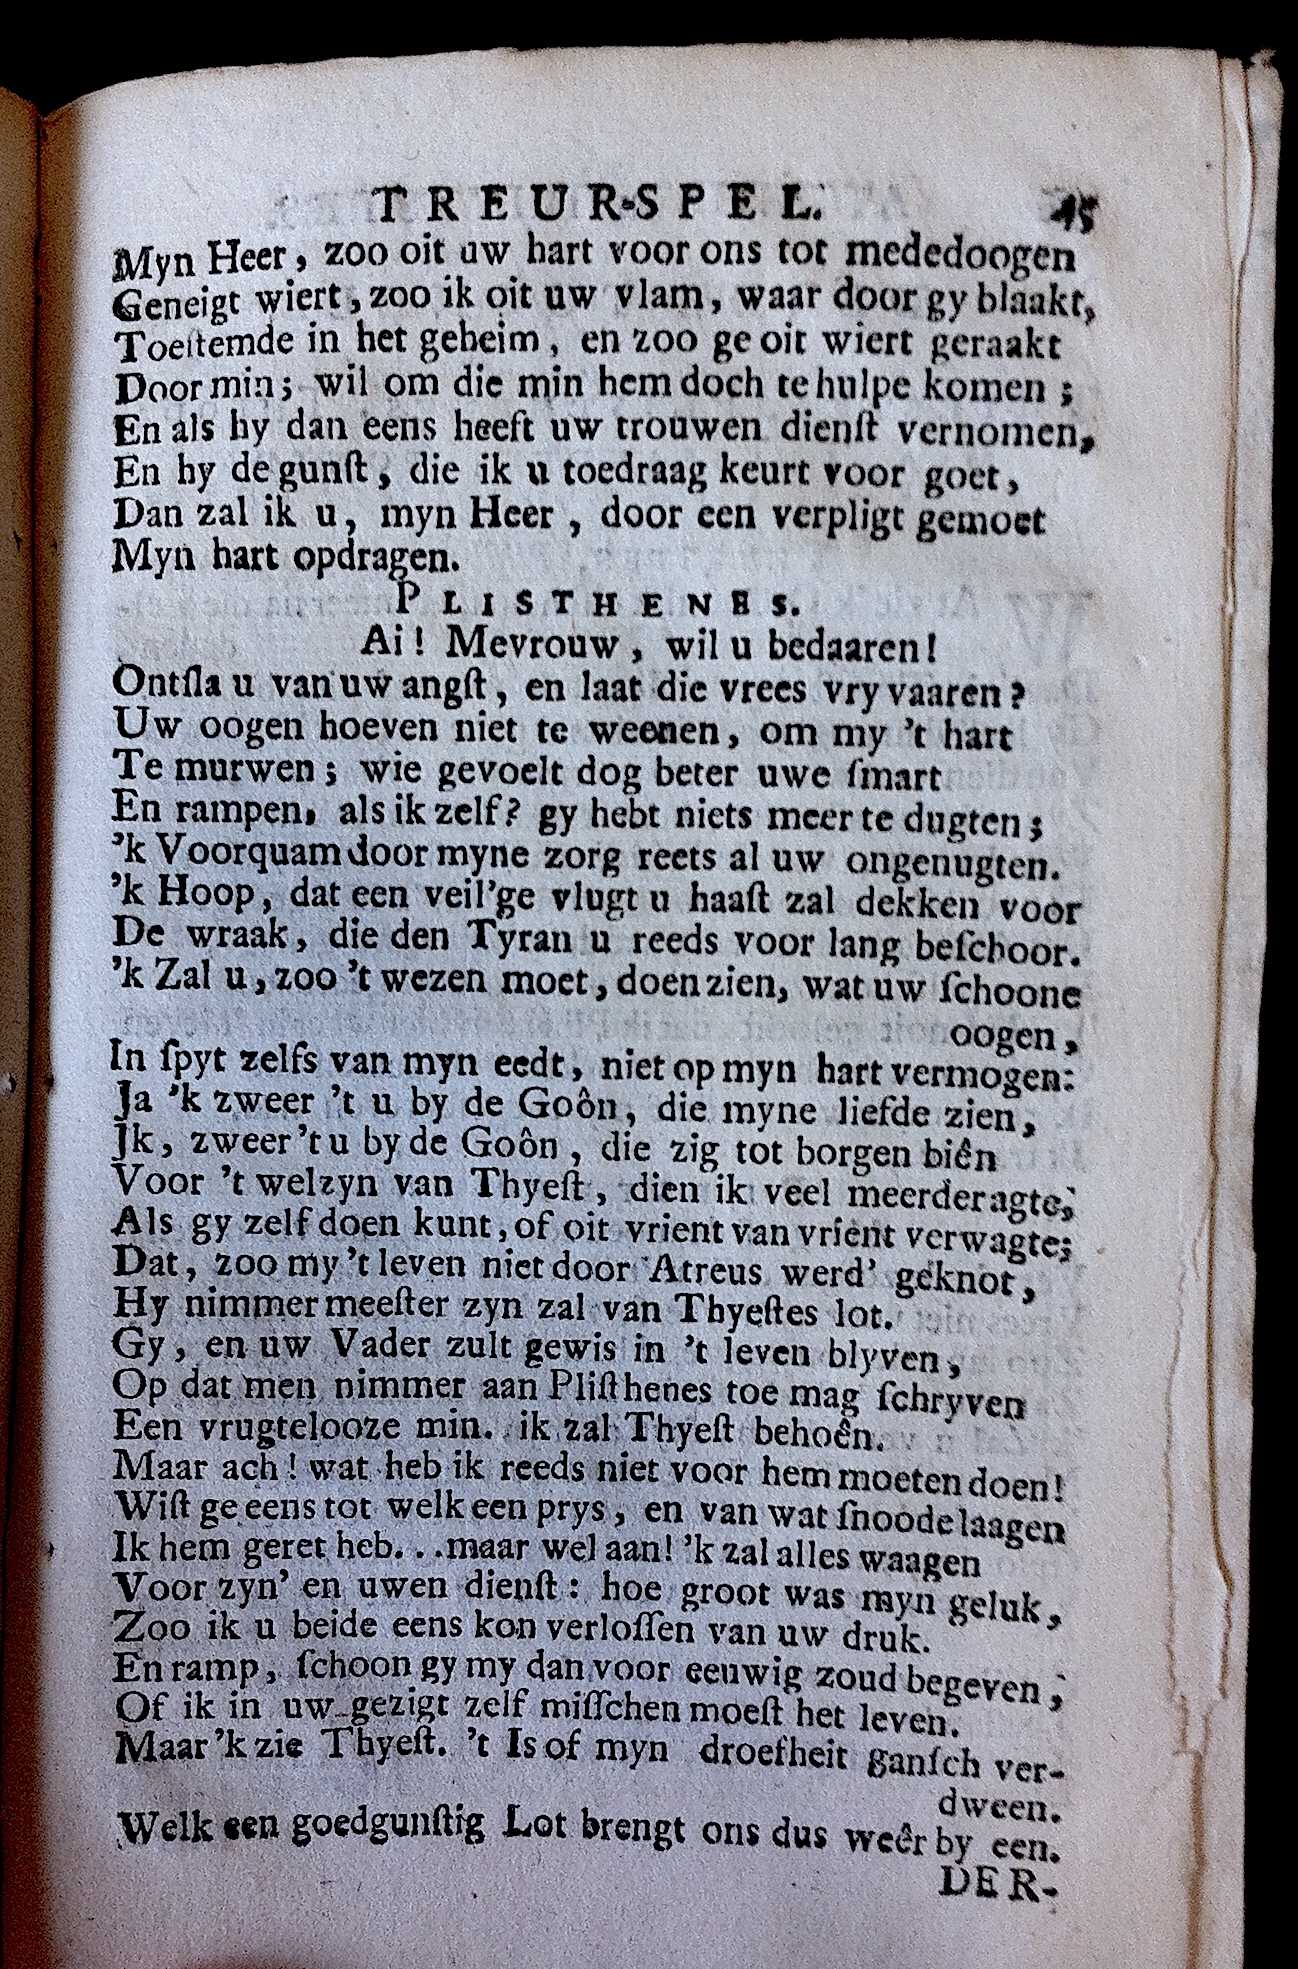 TREUR-SPEL. 45
Myn Heer, zoo oit uw hart voor ons tot mededoogen
Geneigt wiert, zoo ik oit uw vlam, waar door gy blaakt,
Toeſtemde in het geheim, en zoo ge oit wiert geraakt
Door min; wil om die min hem doch te hulpe komen;
En als hy dan eens heeft uw trouwen dienſt vernomen,
En hy de gunſt, die ik u toedraag keurt voor goet,
Dan zal ik u, myn Heer, door een verpligt gemoet
Myn hart opdragen.
PLISTHENES.
Ai! Mevrouw, wil u bedaaren!
Ontſla u van uw angſt, en laat die vrees vry vaaren?
Uw oogen hoeven niet te weenen, om my 't hart
Te murwen; wie gevoelt dog beter uwe ſmart
En rampen, als ik zelf? gy hebt niets meer te dugten;
'k Voorquam door myne zorg reets al uw ongenugten.
'k Hoop, dat een veil'ge vlugt u haaſt zal dekken voor
De wraak, die den Tyran u reeds voor lang beſchoor.
'k Zal u, zoo 't wezen moet, doen zien, wat uw ſchoone
oogen,
In ſpyt zelfs van myn eedt, niet op myn hart vermogen:
Ja 'k zweer 't u by de Goôn, die myne liefde zien,
Jk, zweer 't u by de Goôn, die zig tot borgen biên
Voor 't welzyn van Thyeſt, dien ik veel meerder agte,
Als gy zelf doen kunt, of oit vrient van vrient verwagte;
Dat, zoo my 't leven niet door Atreus werd' geknot,
Hy nimmer meeſter zyn zal van Thyeſtes lot.
Gy, en uw Vader zult gewis in 't leven blyven,
Op dat men nimmer aan Pliſthenes toe mag ſchryven
Een vrugtelooze min. ik zal Thyeſt behoên.
Maar ach! wat heb ik reeds niet voor hem moeten doen!
Wiſt ge eens tot welk een prys, en van wat ſnoode laagen
Ik hem geret heb. . .maar wel aan! 'k zal alles waagen
Voor zyn' en uwen dienſt: hoe groot was myn geluk,
Zoo ik u beide eens kon verloſſen van uw druk.
En ramp, ſchoon gy my dan voor eeuwig zoud begeven,
Of ik in uw gezigt zelf miſſchen moeſt het leven.
Maar 'k zie Thyeſt. 't Is of myn droefheit ganſch ver-
dween.
Welk een goedgunſtig Lot brengt ons dus weêr by een.
DER-